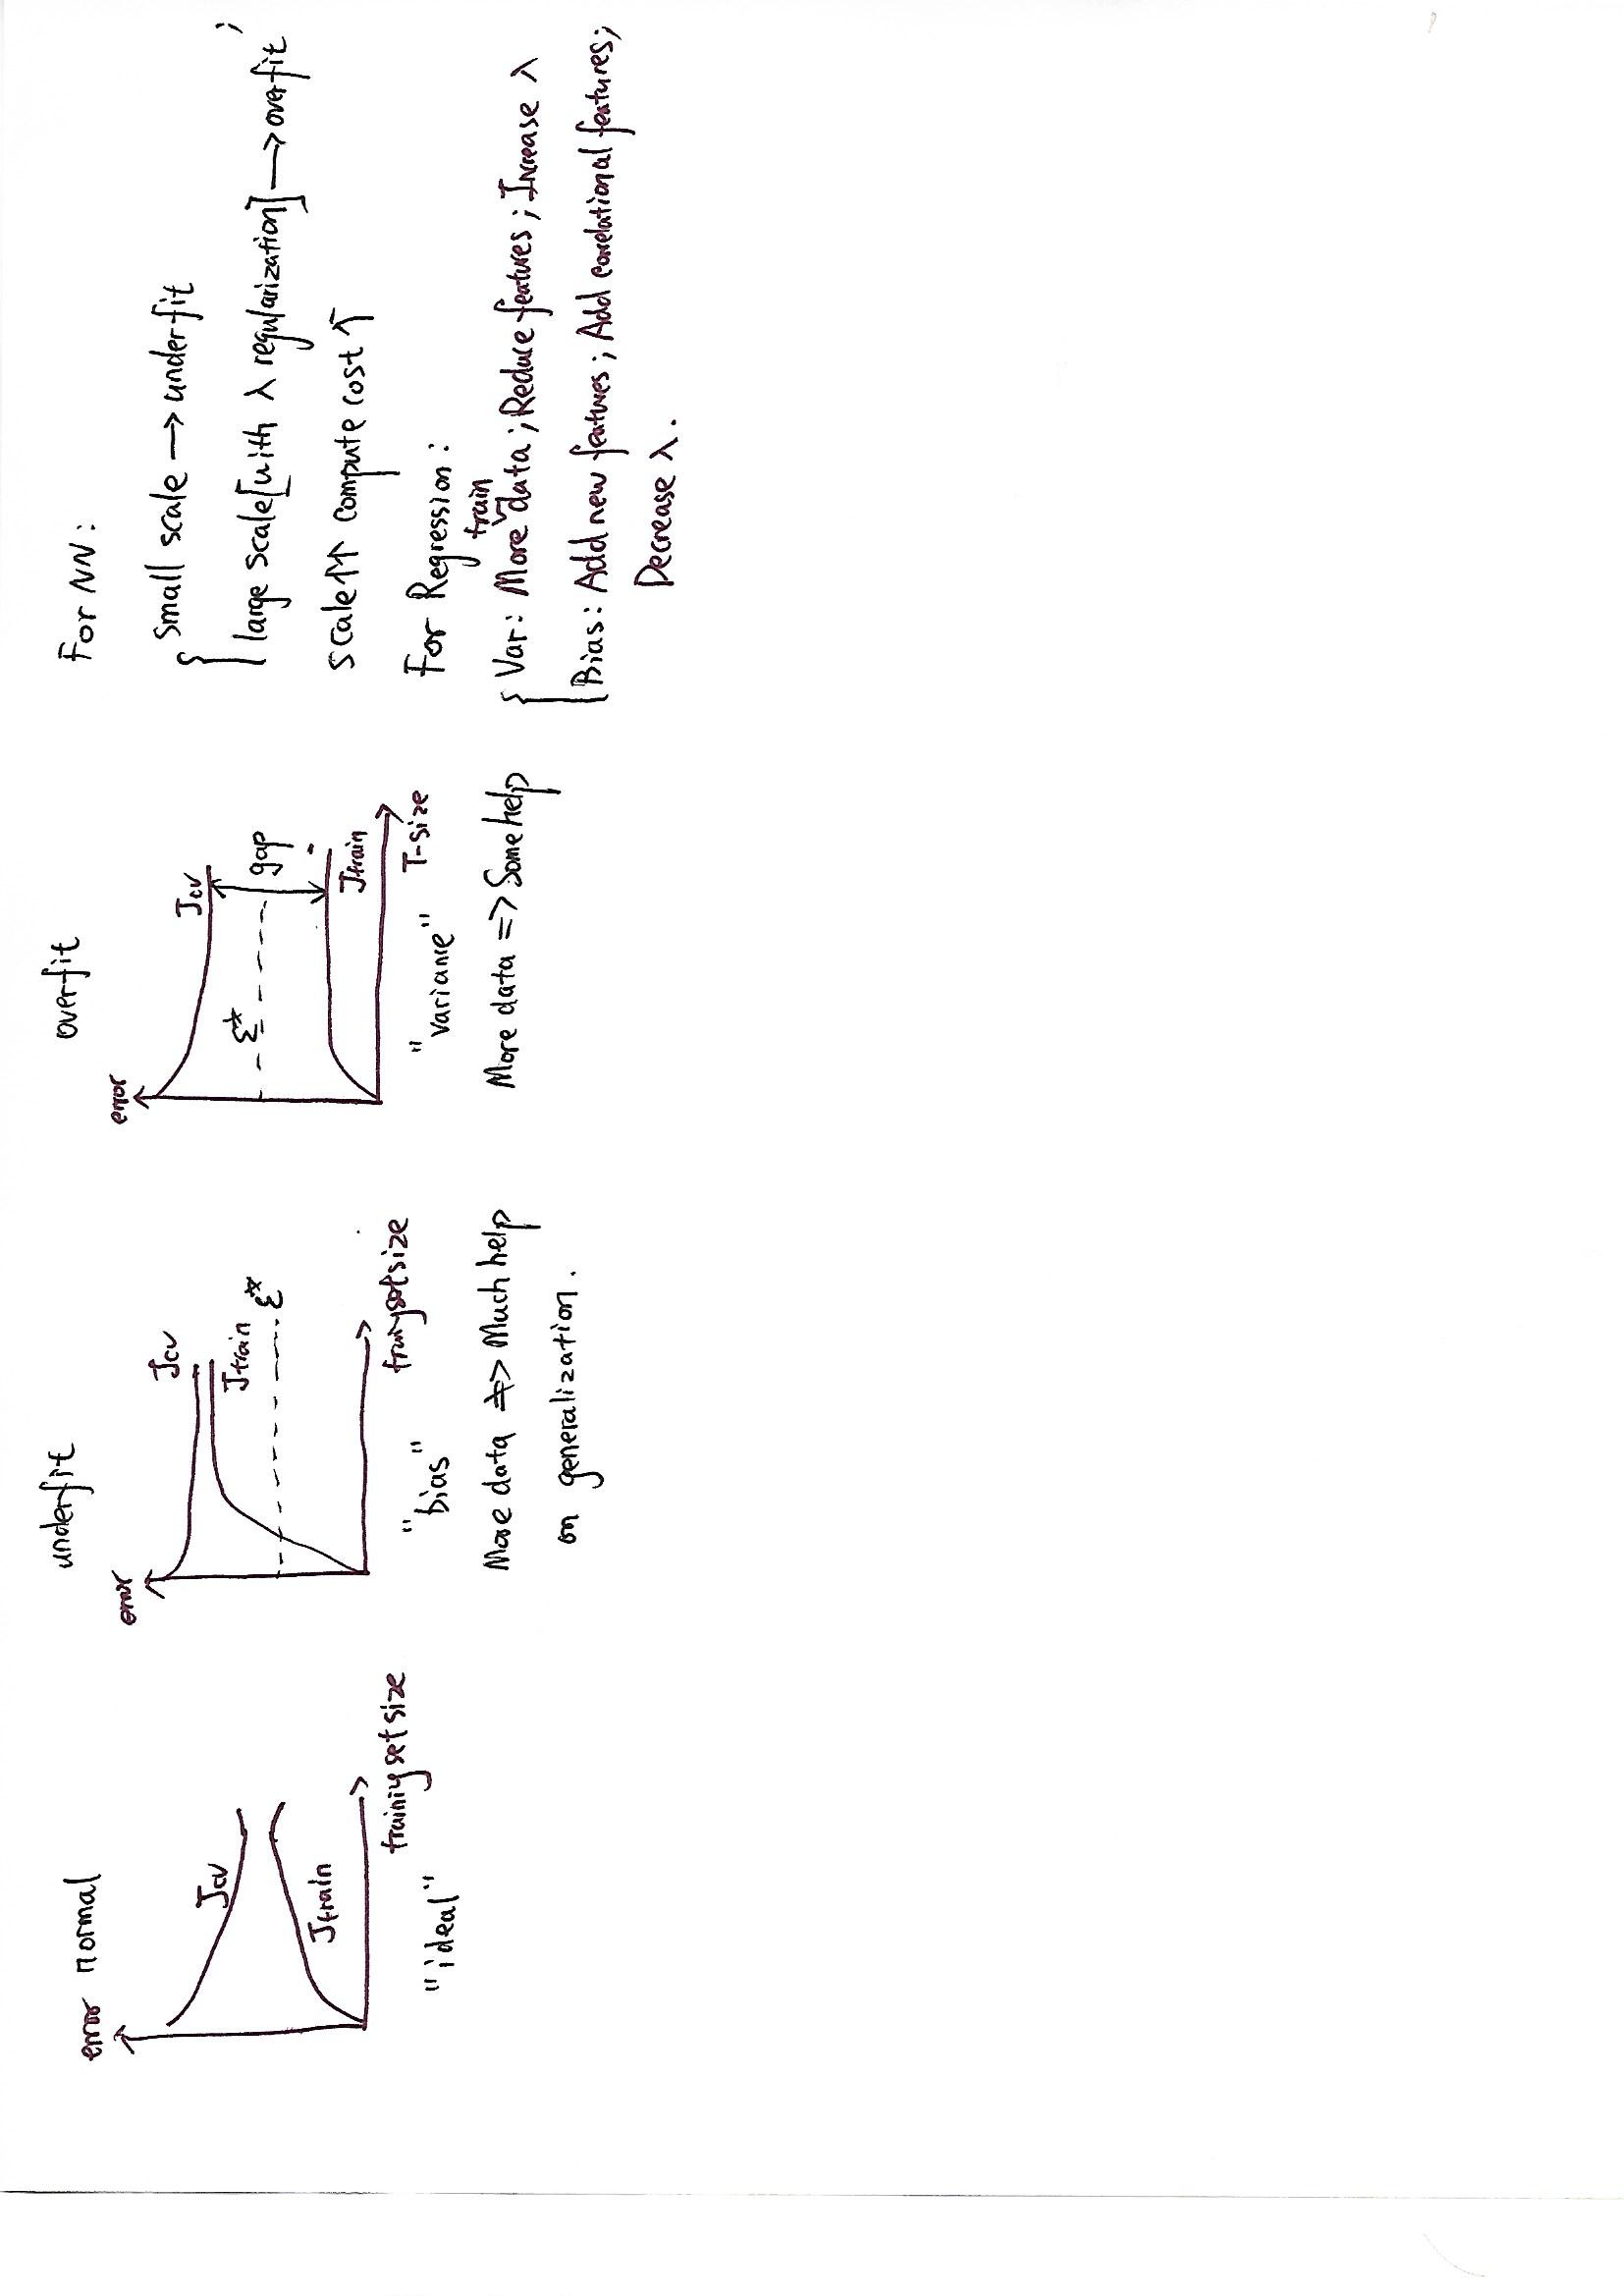 error normal
Jcv
Jtrain
training set size
"ideal"
underfit
error
Jcv
Jtrain
ε*
training set size
"bias"
More data ≠> Much help
on generalization.
overfit
error
Jcv
ε*
gap
Jtrain
T-size
"variance"
More data => Some help
For NN:
small scale → underfit
large scale [with λ regularization] → overfit ;
scale↑↑ compute cost ↑
For Regression:
train
Var: More data; Reduce features; Increase λ
Bias: Add new features; Add correlational features;
Decrease λ.